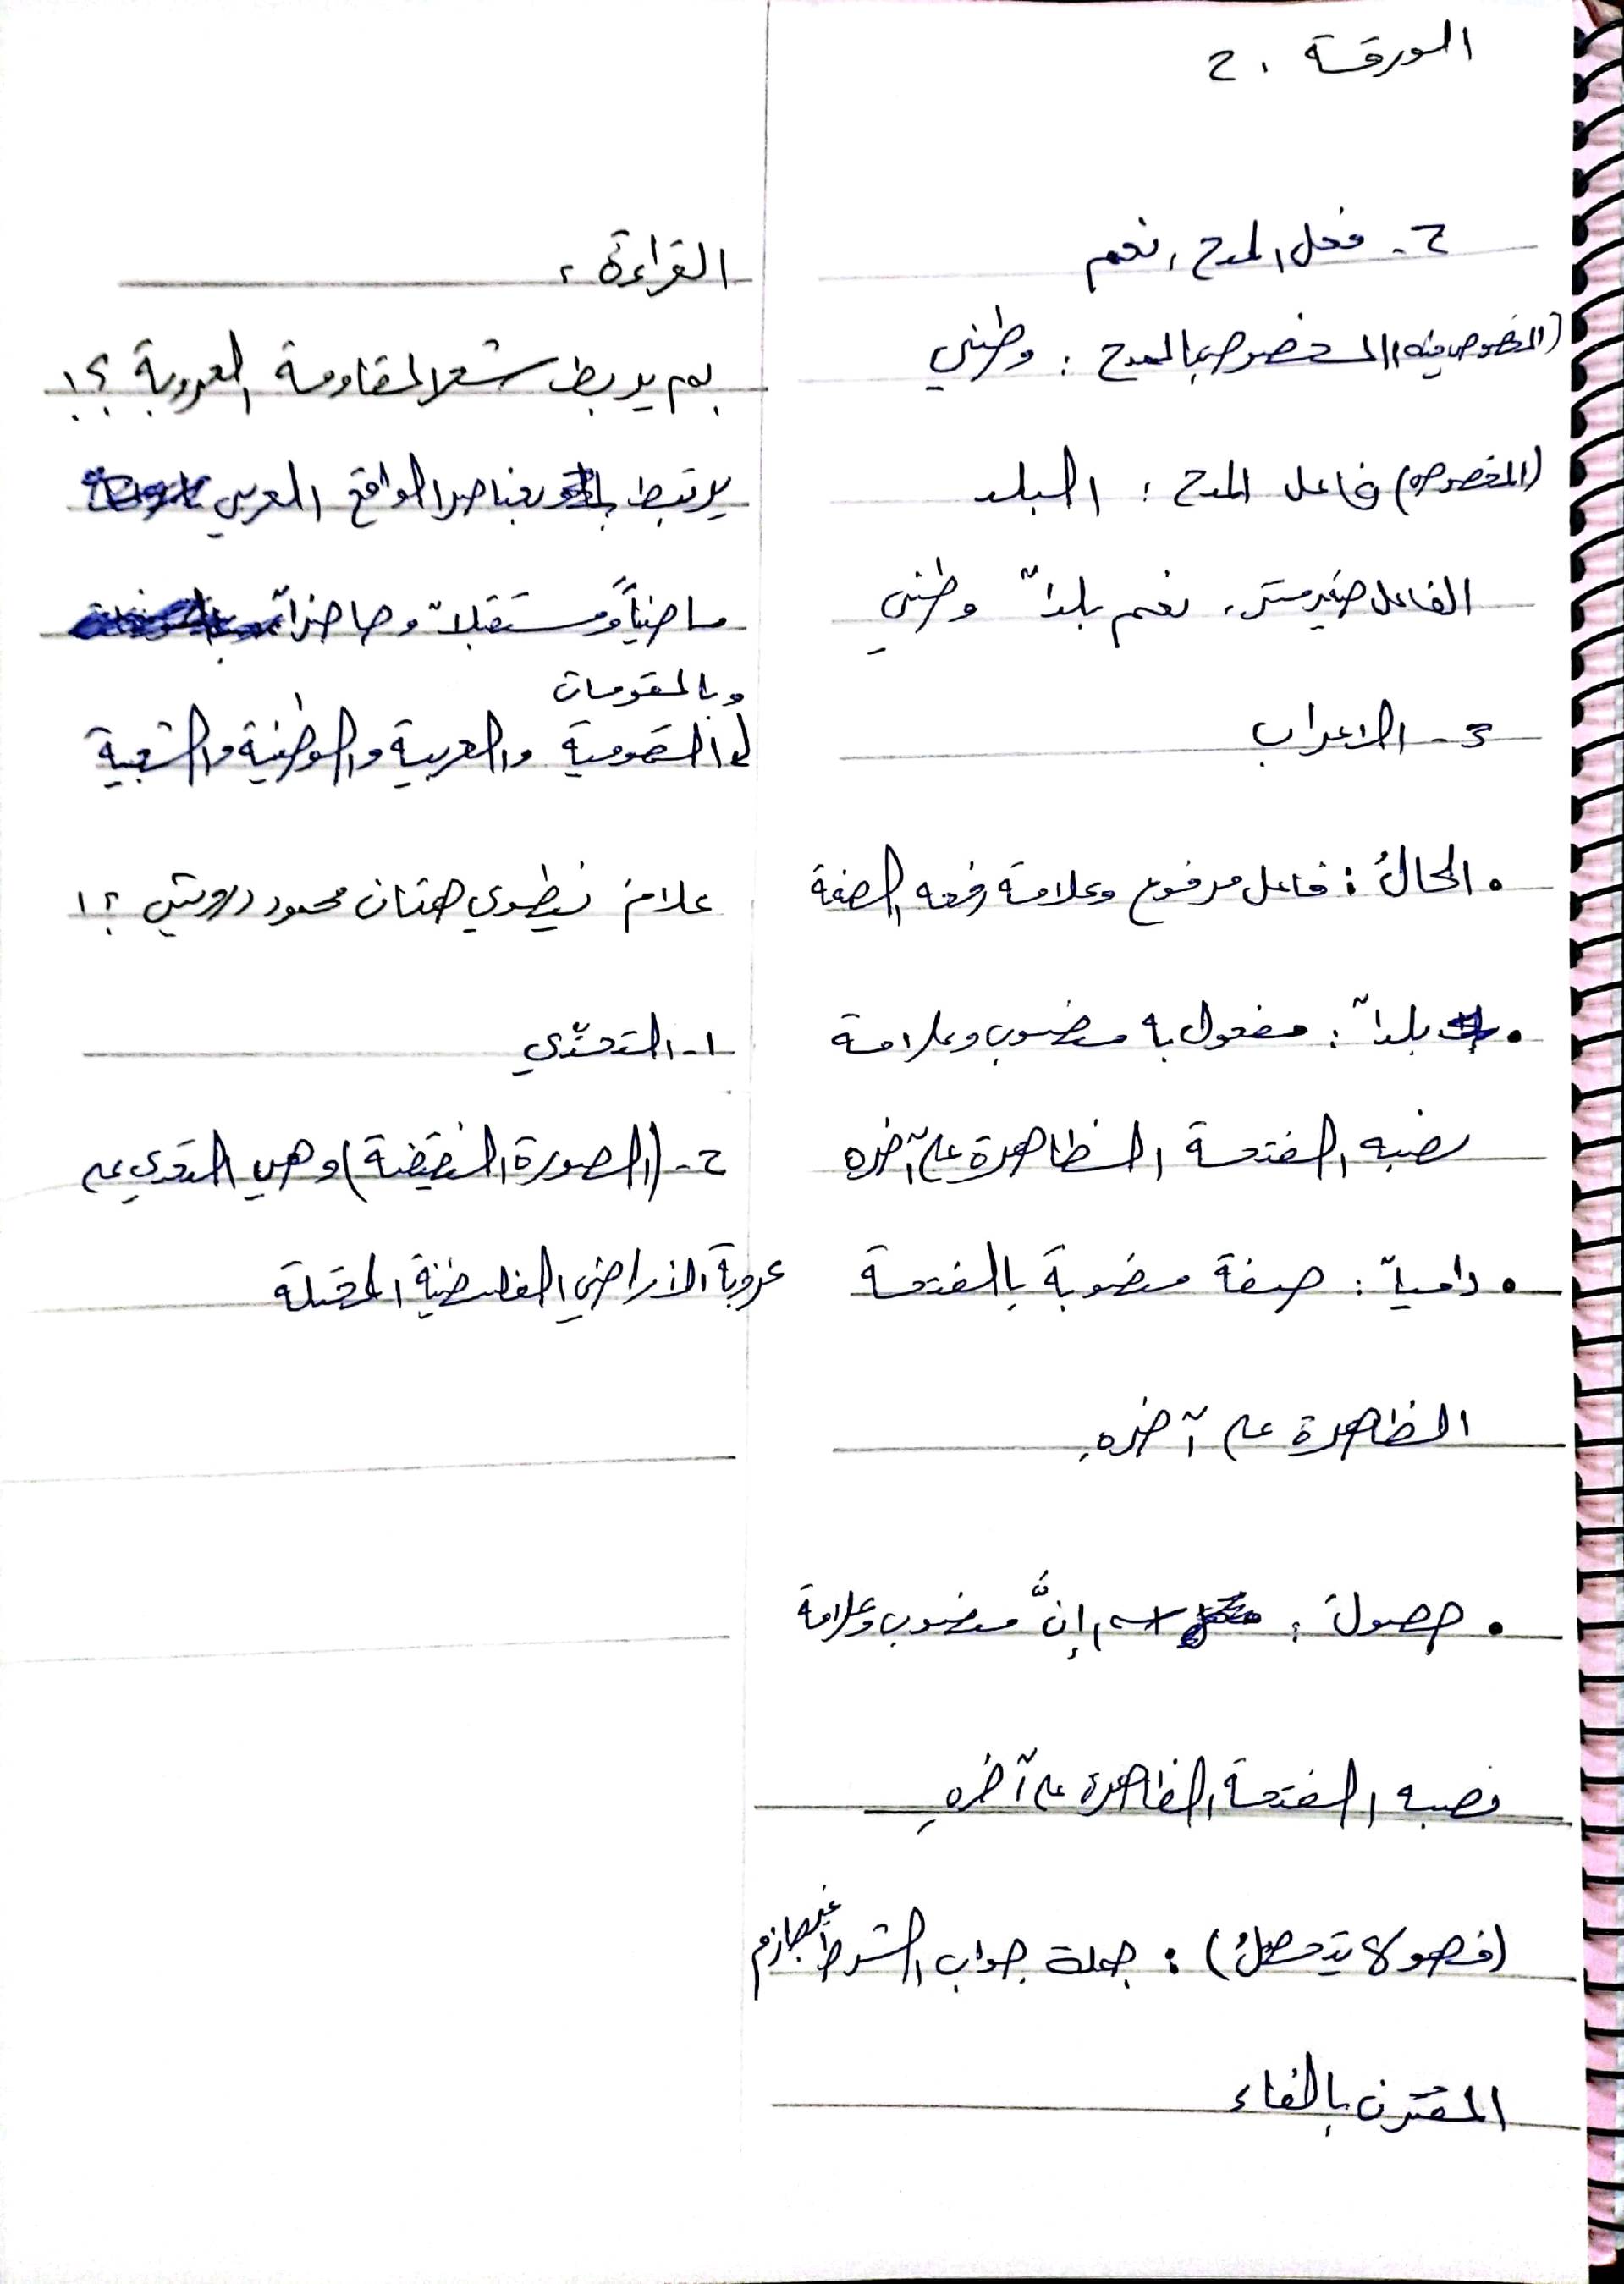 الورقة ٢٠
٢- فعل المدح: نعم
(المخصوص منه) المخصوص بالمدح: وطني
(المخصوص) فاعل المدح: البلد
الفاعل ضمير مستتر: نعم بلداً وطني
3- الاعراب
• الحالُ: فاعل مرفوع وعلامة رفعه الضمة
• بلداً: مفعول به منصوب وعلامة
نصبه الفتحة الظاهرة على آخره
• دامياً: صفة منصوبة بالفتحة
الظاهرة على آخره.
• حصولَ: اسم إنَّ منصوب وعلامة
نصبه الفتحة الظاهرة على آخره
(فهو لا يتحصلُ): جملة جواب الشرط غير جازم
المقترن بالفاء
القراءة:
بم يربط شعر المقاومة العروبة ؟!
يرتبط بعناصر الواقع العربي
ماضياً ومستقبلاً وحاضراً
وبالمقومات
القومية والعربية والوطنية والشعبية
علامَ ينطوي هتاف محمود درويش ؟!
١- التحدّي
٢- (الصورة النقيضة) وهي التعدي على
عروبة الأراضي الفلسطينية المحتلة